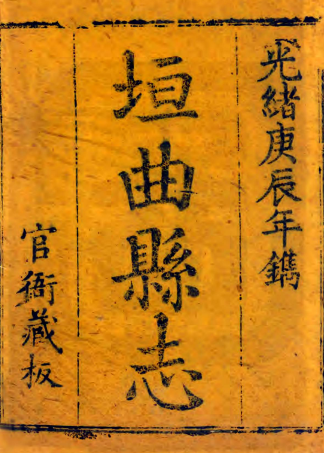 光緒庚辰年鐫
垣曲縣志
官衙藏板